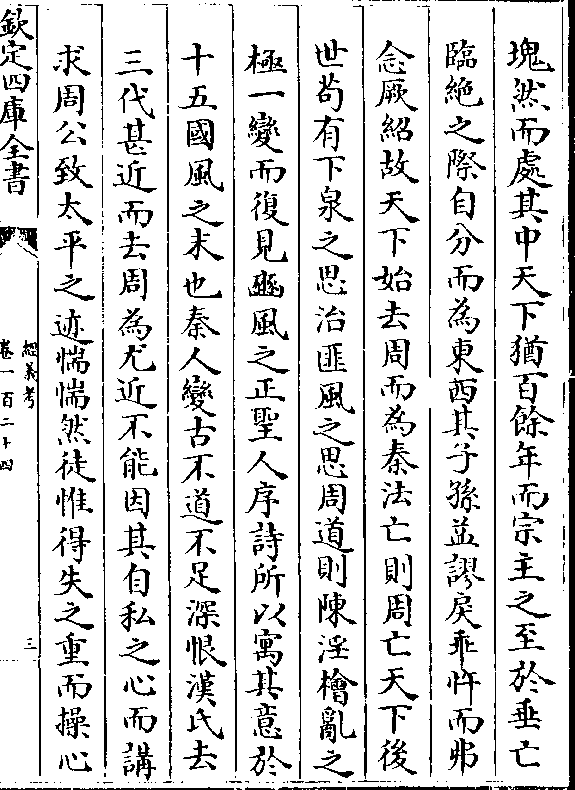 塊然而處其中天下猶百餘年而宗主之至於垂亡
臨絶之際自分而為東西其子孫益謬戾乖忤而弗
念厥紹故天下始去周而為秦法亡則周亡天下後
世茍有下泉之思治匪風之思周道則陳淫檜亂之
極一變而復見豳風之正聖人序詩所以寓其意於
十五國風之末也秦人變古不道不足深恨漢氏去
三代甚近而去周為尤近不能因其自私之心而講
求周公致太平之迹惴惴然徒惟得失之重而操心
欽定四庫全書
經義考
卷一百二十四
三